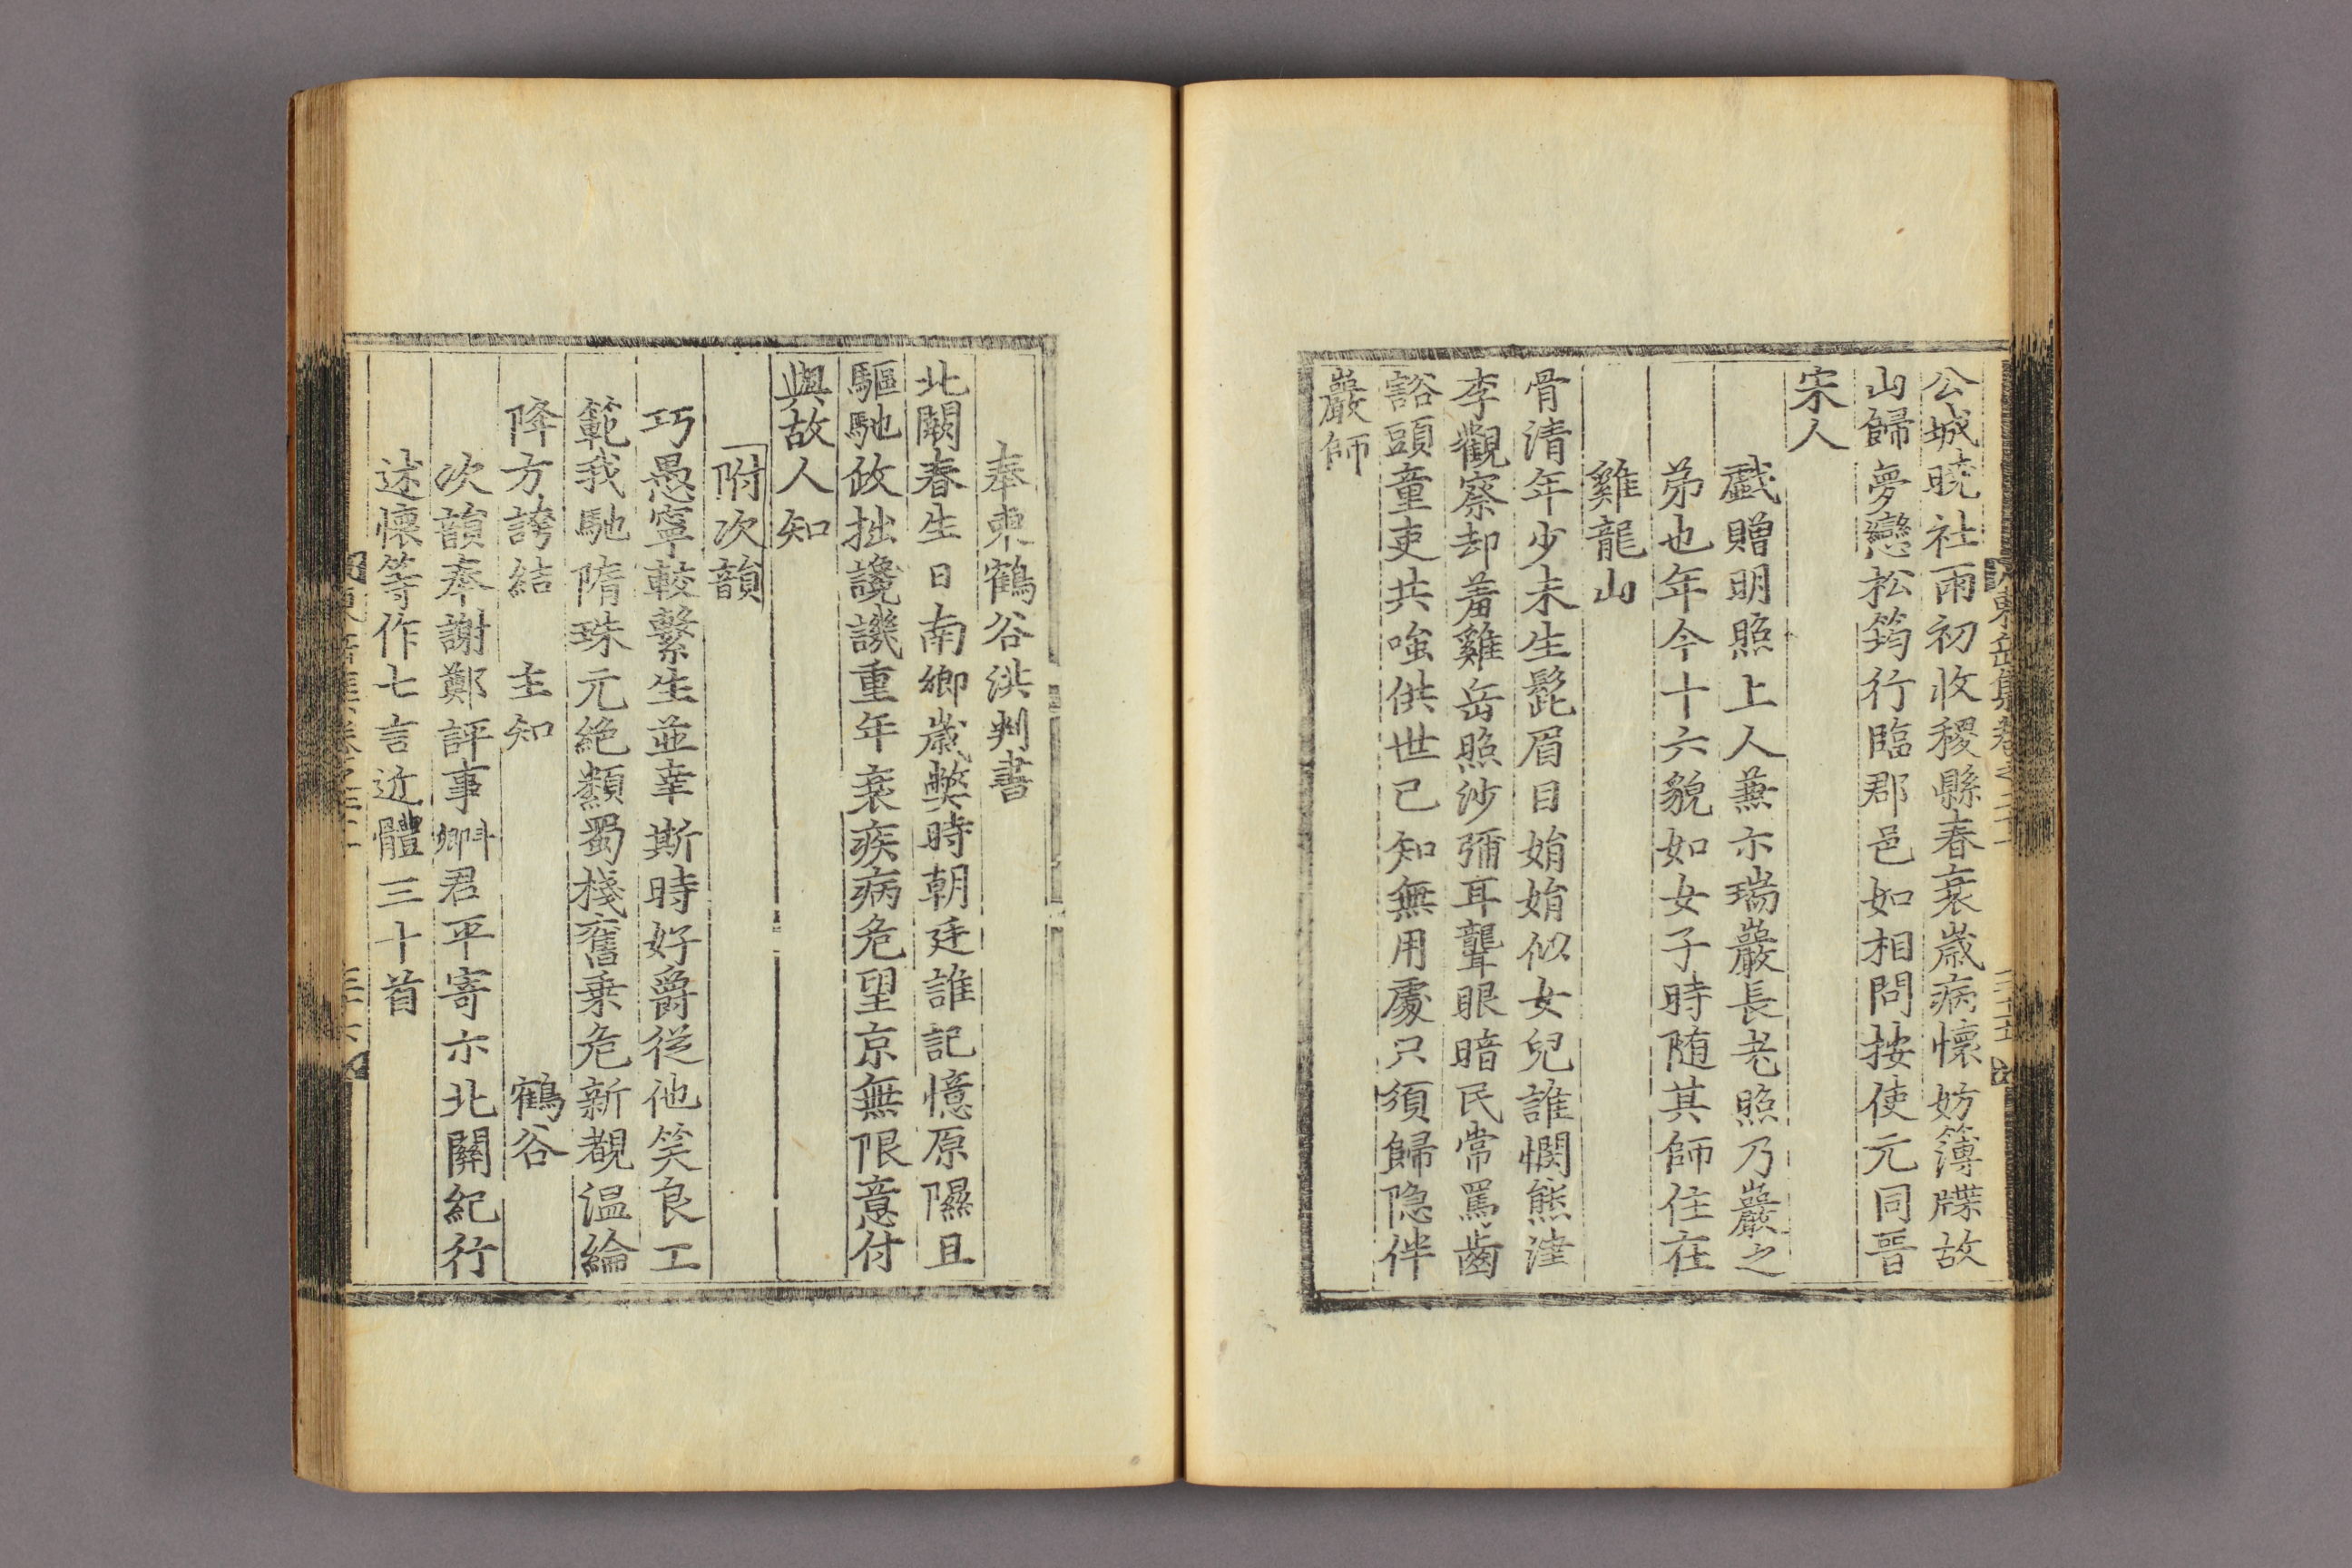 公城晓社雨初收稷縣春衰歲病懷妨簿牒故
山歸夢戀松筠行臨郡邑如相問按使元同晉
宋人
戱贈明照上人蕪示瑞巖長老照乃巖之
弟也年今十六貌如女子時随其師住在
雞龍山
骨清年少未生髭眉目娟娟似女兒誰憫熊津
李觀察却羞雞岳照沙彌耳聾眼暗民常罵齒
豁頭童吏共嗤供世已知無用處只須歸隐伴
巖師
奉柬鶴谷洪判書
北闕春生日南鄉歲弊時朝廷誰記憶原隰且
驅馳政拙讒譏重年衰疾病危望京無限意付
與故人知
附次韻
巧愚寧較繫生並幸斯時好爵從他笑良工
範我馳隋珠元絶纇蜀棧舊乗危新覩温綸
降方誇結主知 鶴谷
次韻奉謝鄭評事斗卿君平寄示北關紀行
述懷等作七言近體三十首